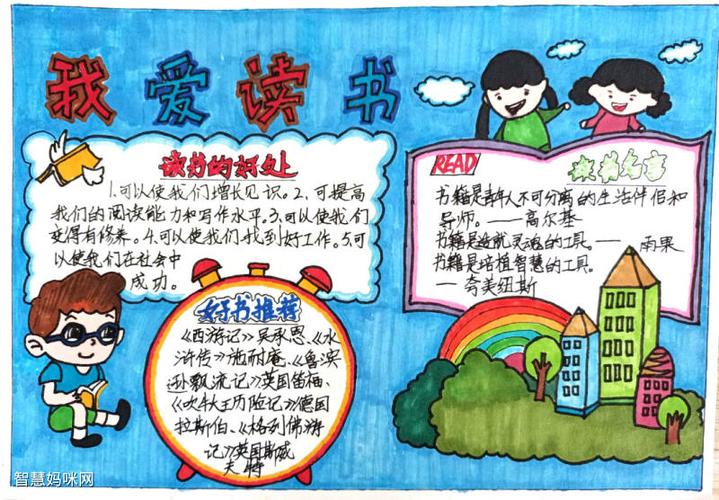 我爱读书
读书的好处
1.可以使我们增长见识。2、可提高
我们的阅读能力和写作水平。3.可以使我们
变得有修养。4.可以使我们找到好工作。5.可
以使我们在社会中
成功。
READ
读书名言
书籍是青年人不可分离的生活伴侣和
导师。——高尔基
书籍是造就灵魂的工具。—— 雨果
书籍是培植智慧的工具。
—夸美纽斯
好书推荐
《西游记》吴承恩、《水
浒传》施耐庵、《鲁滨
逊飘流记》英国笛福、
《吹牛大王历险记》德国
拉斯伯、《格列佛游
记》英国斯威
夫特
智慧妈咪网